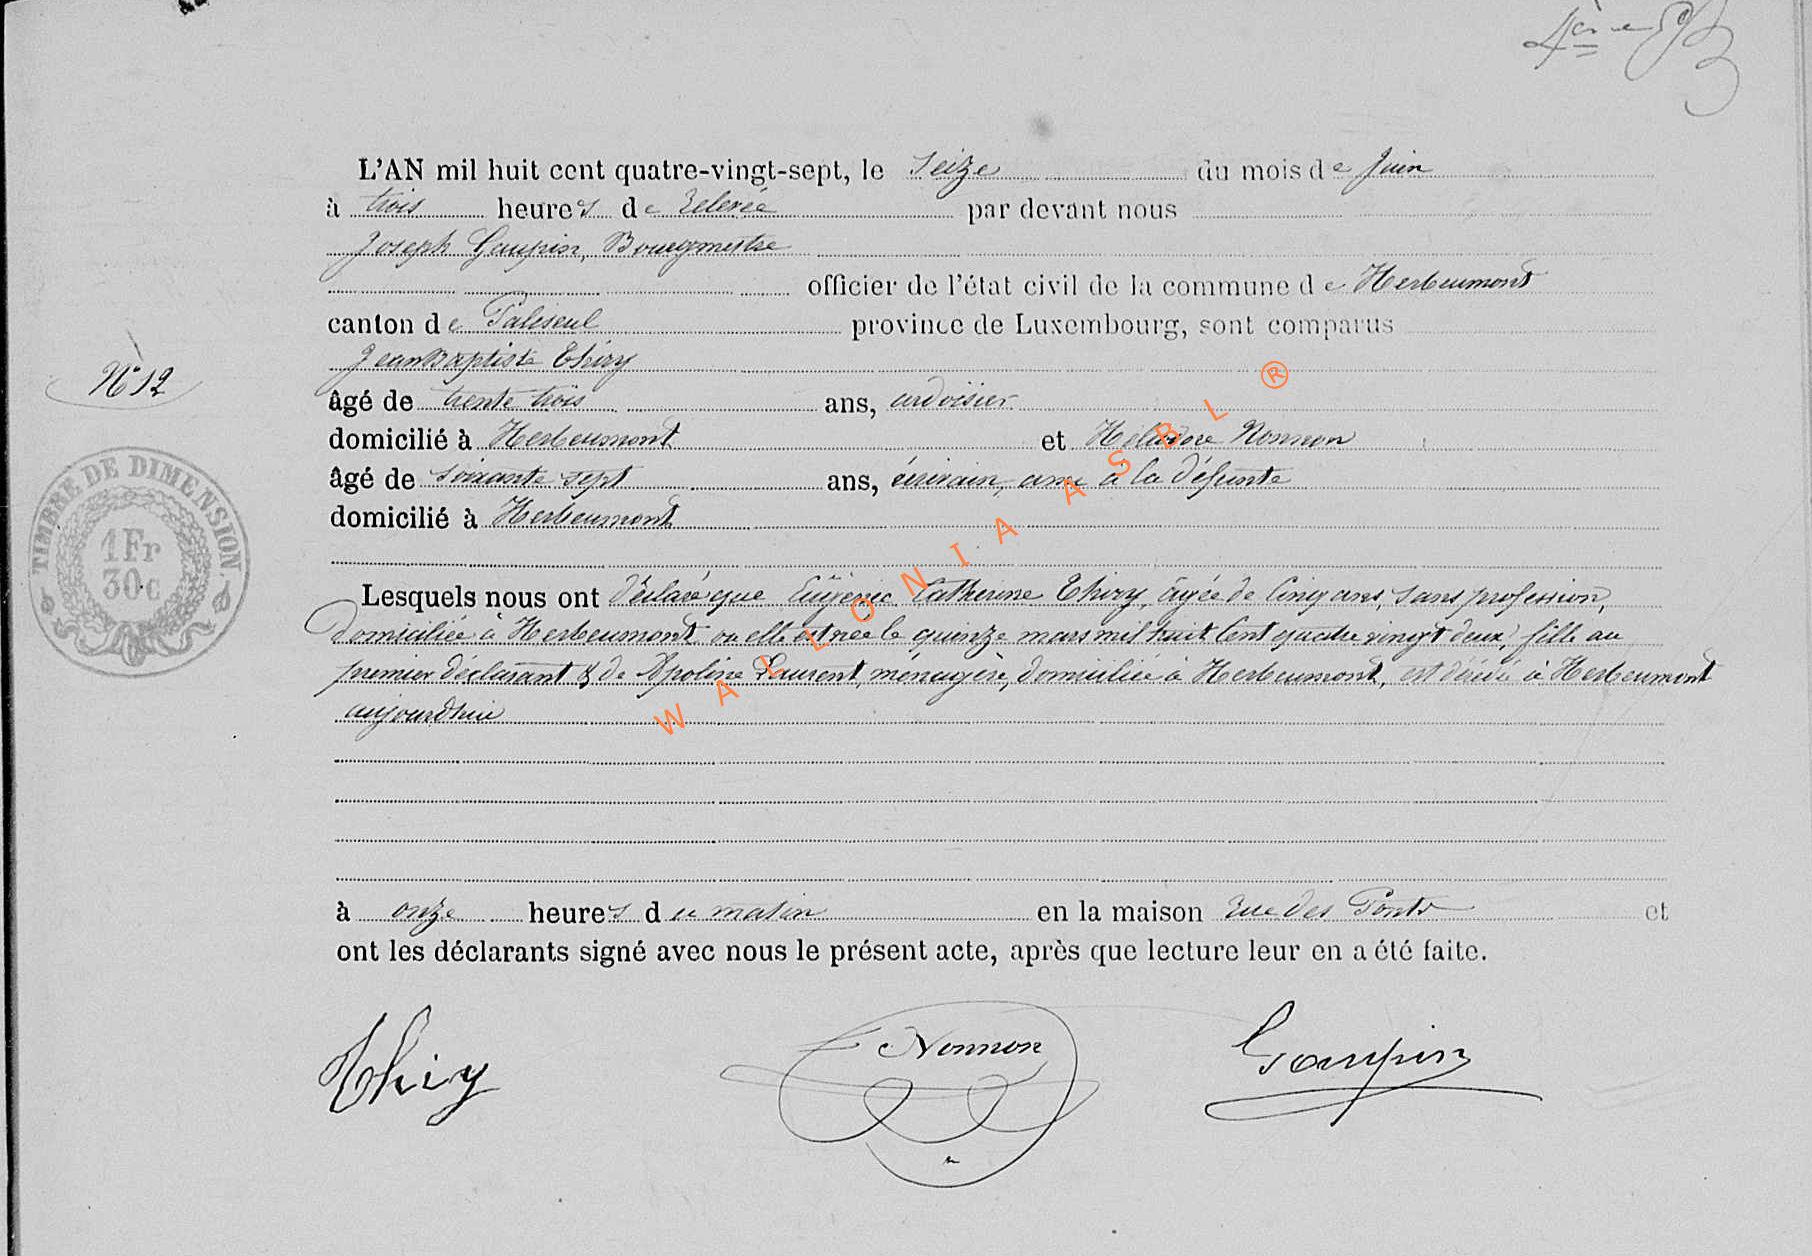 L'AN mil huit cent quatre-vingt-sept, le seize du mois de Juin
à trois heures de relevée par devant nous
Joseph Gaupin, Bourgmestre
officier de l'état civil de la commune de Herbeumont
canton de Paliseul province de Luxembourg, sont comparus
Jean Baptiste Thiry
N° 12
âgé de trente trois ans, ardoisier
domicilié à Herbeumont et Héliodore Nonnon
âgé de soixante sept ans, écrivain, ami à la défunte
domicilié à Herbeumont
TIMBRE DE DIMENSION.
1Fr
30c
Lesquels nous ont déclaré que Eugénie Catherine Thiry, âgée de Cinq ans, sans profession,
domiciliée à Herbeumont où elle est née le quinze mars mil huit Cent quatre vingt deux, fille au
premier déclarant & de Apoline Laurent, ménagère, domiciliée à Herbeumont, est décédée à Herbeumont
aujourdhui
à onze heures du matin en la maison Rue des Ponts et
ont les déclarants signé avec nous le présent acte, après que lecture leur en a été faite.
Thiry Nonnon Gaupin
WALLONIA ASBL ®